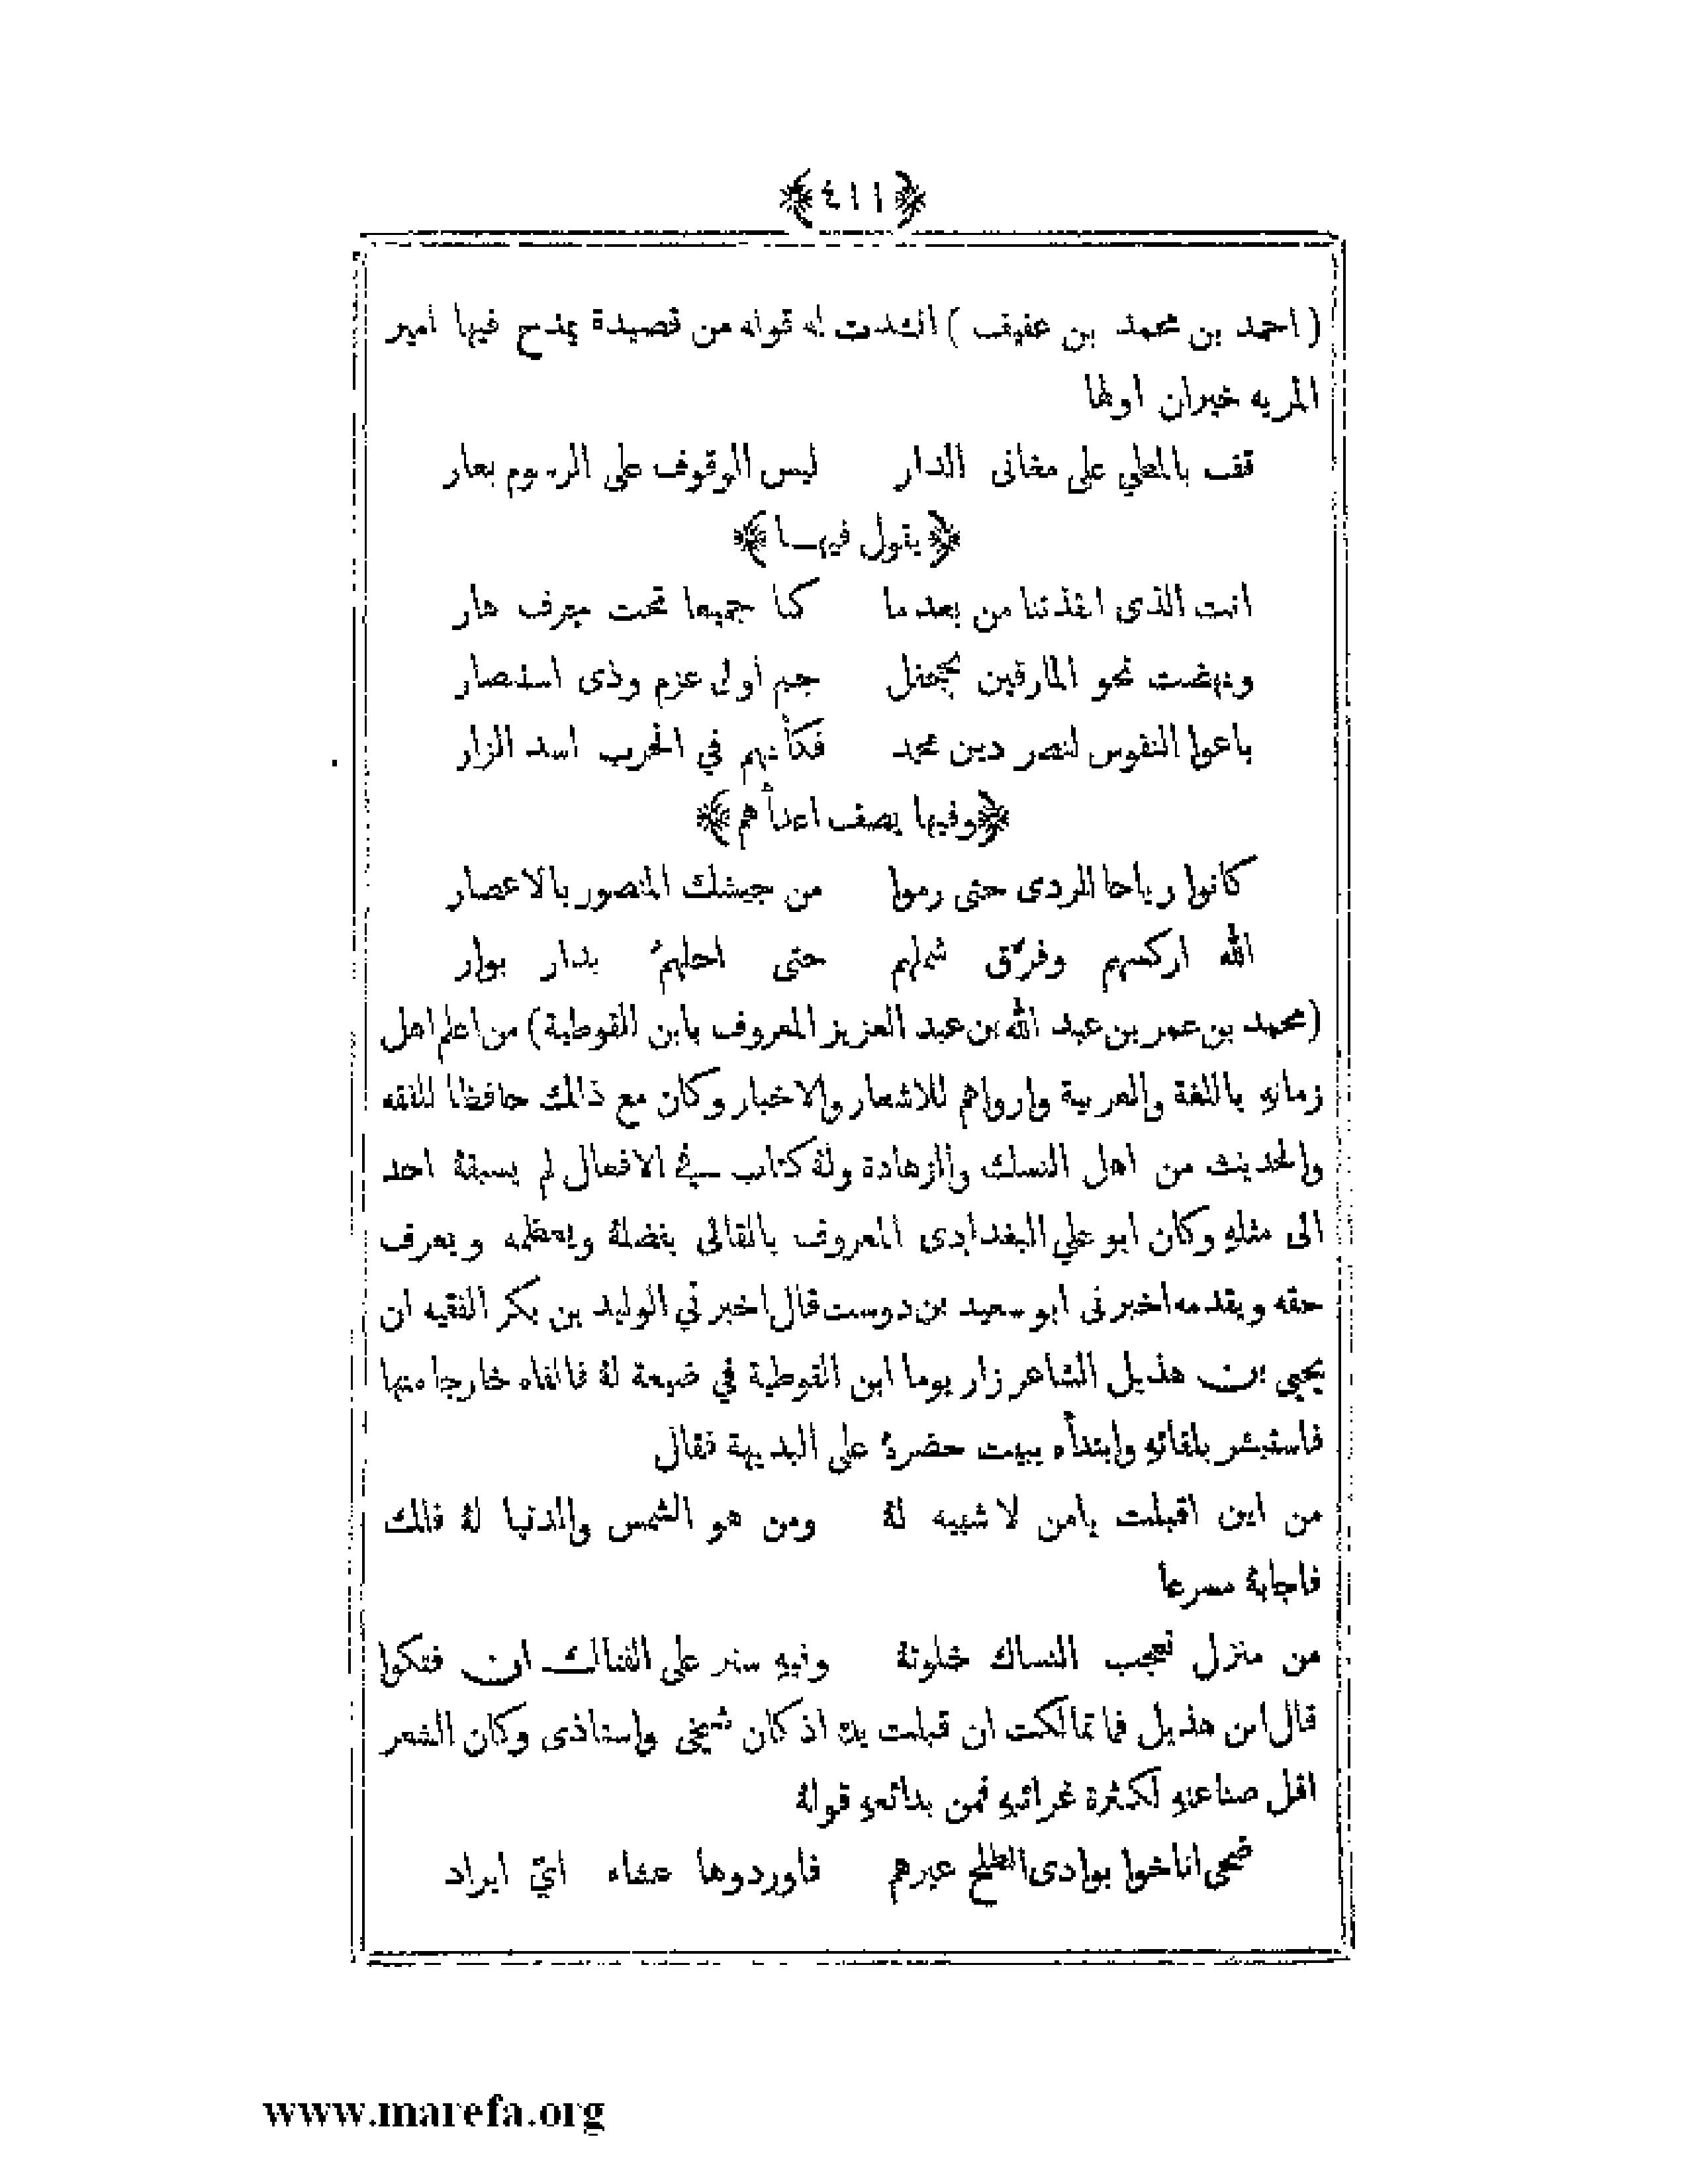 ﴿٤١١﴾
(احمد بن محمد بن عفيف) انشدت له قوله من قصيدة يمدح فيها امير
المريه خيران اولها
قف بالمطي على مغانى الدار ليس الوقوف على الرسوم بعار
﴿يقول فيهـا﴾
انت الذى انقذتنا من بعد ما كنا جميعا تحت جرف هار
ونهضت نحو المارقين بجحفل جم اولى عزم وذى استنصار
باعوا النفوس لنصر دين محمد فكأنهم في الحرب اسد الزار
﴿وفيها يصف اعدأهم﴾
كانوا رياحا للردى حتى رموا من جيشك المنصور بالاعصار
الله اركسهم وفرّق شملهم حتى احلهمُ بدار بوار
(محمد بن عمر بن عبد الله بن عبد العزيز المعروف بابن القوطية) من اعلم اهل
زمانهِ باللغة والعربية وارواهم للاشعار والاخبار وكان مع ذالك حافظا للفقه
والحديث من اهل النسك والزهادة ولهُ كتاب في الافعال لم يسبقهُ احد
الى مثلهِ وكان ابو علي البغدادى المعروف بالقالى يفضلهُ ويعظمه ويعرف
حقه ويقدمه اخبرنى ابو سعيد بن دوست قال اخبرني الوليد بن بكر الفقيه ان
يحيى بن هذيل الشاعر زار يوما ابن القوطية في ضيعة لهُ فالفاه خارجا منها
فاستبشر بلقائهِ وابتدأه ببيت حضرهُ على البديهة فقال
من اين اقبلت يامن لا شبيه لهُ ومن هو الشمس والدنيا لهُ فلك
فاجابهُ مسرعا
من منزل تعجب النساك خلوتهُ وفيهِ ستر على الفتاك ان فتكوا
قال ابن هذيل فما تمالكت ان قبلت يدهُ اذ كان شيخى واستاذى وكان الشعر
اقل صناعتهِ لكثرة غرائبهِ فمن بدائعهِ قولهُ
ضحى اناخوا بوادى الطلح عيرهم فاوردوها عشاء ايّ ايراد
www.marefa.org